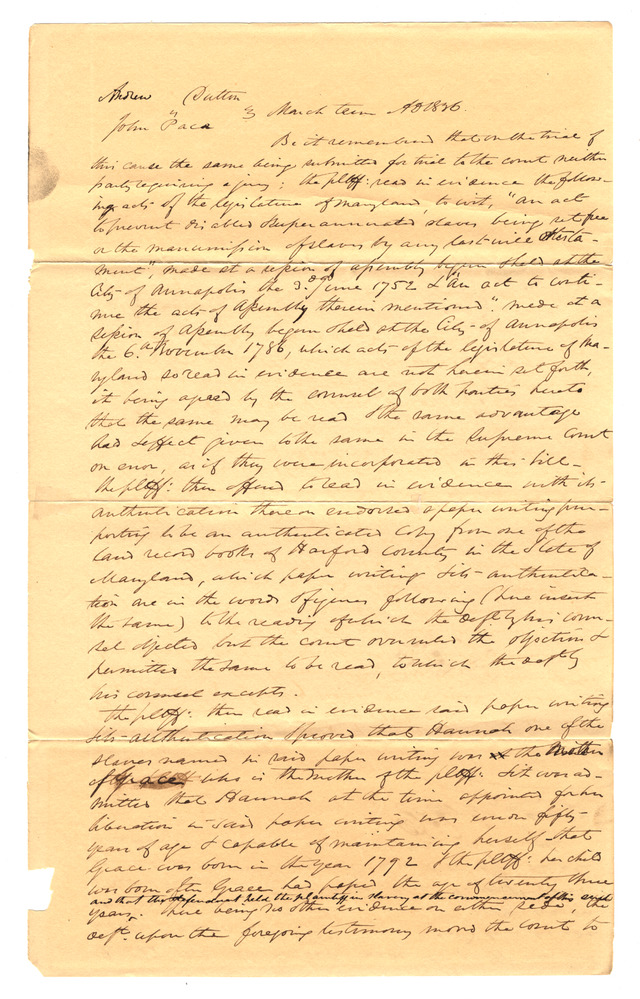 Andrew Dutton
vs } March term AD 1826.
John Paca
Be it remembered that on the trial of
this cause the same being submitted for trial to the court neither
party requiring a jury: the pltff: read in evidence the follow-
ing acts of the legislature of Maryland, to wit, "an act
to prevent disabled & superannuated slaves being set free
or the manumission of slaves by any last will & testa-
ment", made at a session of assembly begun & held at the
City of Annapolis the 3.d June 1752 & "An act to conti-
nue the acts of Assembly therein mentioned". made at a
session of Assembly begun & held at the City of Annapolis
the 6.th November 1786, which acts of the legislature of Ma-
ryland so read in evidence are not herein set forth,
it being agreed by the counsel of both parties hereto
that the same may be read & the same advantage
had & effect given to the same in the Supreme Court
on error, as if they were incorporated in this bill—
The pltff: then offered to read in evidence with its
authentication thereon endorsed a paper writing pur-
porting to be an authenticated Copy from one of the
land record books of Harford county in the State of
Maryland, which paper writing & its authentica-
tion are in the words & figures following (here insert
the same) to the reading of which the deft by his coun-
sel objected but the court overruled the objection &
permitted the same to be read, to which the deft by
his counsel excepts.
The pltff: then read in evidence said paper writing
& its authentication & proved that Hannah one of the
slaves named in said paper writing was the Mother
of Grace who is the mother of the pltff: & it was ad-
mitted that Hannah at the time appointed for her
liberation in said paper writing was under fifty
years of age & capable of maintaining herself—that
Grace was born in the year 1792 & the pltff: her child
was born after Grace had passed the age of twenty three
and that the defendant held the plaintiff in slavery at the commencement of this suit
years. There being no other evidence on either side, the
deft. upon the foregoing testimony moved the Court to